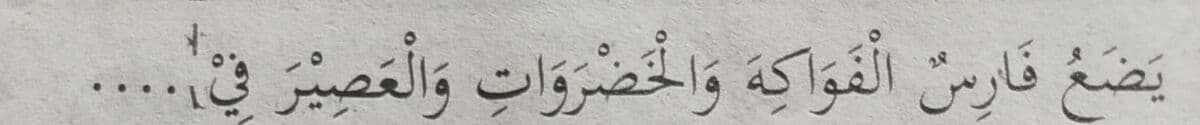 يَضَعُ فَارِسٌ الْفَوَاكِهَ وَالْخَضْرَوَاتِ وَالْعَصِيْرَ فِيْ.....